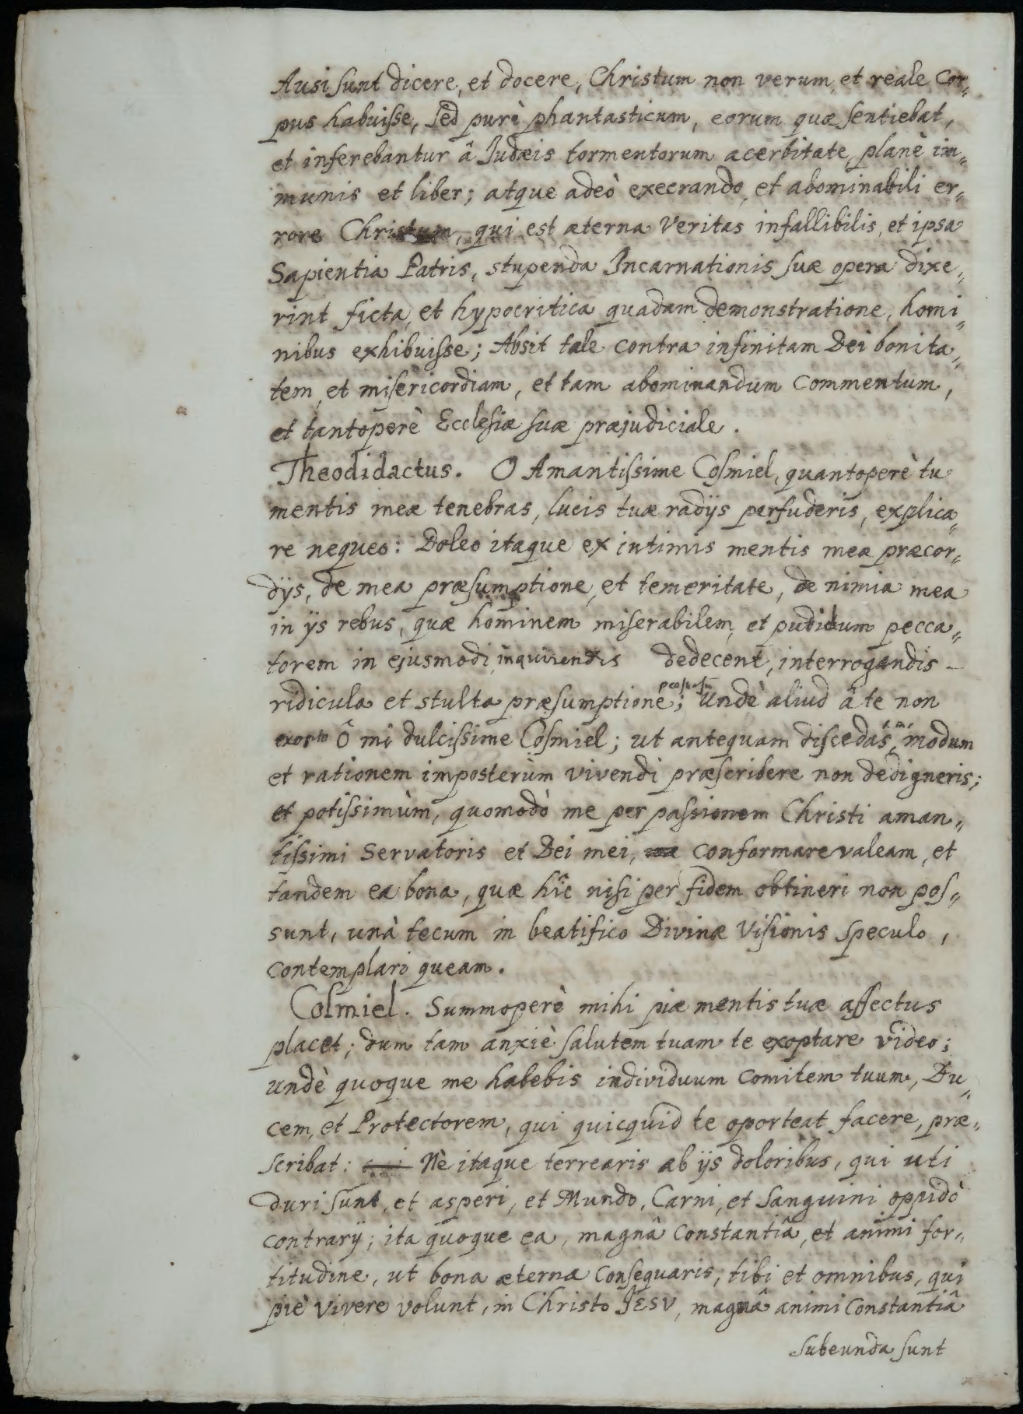 Ausi sunt dicere, et docere, Christum non verum et reale Cor„
pus habuisse, sed purè phantasticum, eorum quæ sentiebat,
et inferebantur â Judæis tormentorum acerbitate, planè im„
munis et liber; atque adeò execrando, et abominabili er„
rore Christum, qui est æterna Veritas infallibilis, et ipsa
Sapientia Patris, stupenda Incarnationis suæ opera dixe„
rint ficta, et hypocritica quadam demonstratione, homi„
nibus exhibuisse; Absit tale contra infinitam Dei bonita„
tem, et misericordiam, et tam abominandum Commentum,
et tantoperè Ecclesiæ suæ præjudiciale.
Theodidactus. O Amantissime Cosmiel, quantoperè tu
mentis meæ tenebras, lucis tuæ radijs perfuderis, explica„
re nequeo: Doleo itaque ex intimis mentis meæ præcor„
dijs, de mea præsumptione, et temeritate, de nimia mea
in ijs rebus, quæ hominem miserabilem, et pudidum pecca„
torem in ejusmodi inquirendis dedecent, interrogandis –
ridicula et stulta præsumptione; Undè aliud â te non
Ô mi dulcissime Cosmiel; ut antequam discedas, mi modum
et rationem imposterùm vivendi præscribere non dedigneris;
et potissimùm, quomodò me per passionem Christi aman„
tissimi Servatoris et Dei mei, conformare valeam, et
tandem ea bona, quæ hîc nisi per fidem obtineri non pos„
sunt, unà tecum in beatifico Divinæ Visionis speculo,
contemplari queam.
Cosmiel. Summoperè mihi piæ mentis tuæ affectus
placet; dum tam anxiè salutem tuam te exoptare video;
undè quoque me habebis individuum Comitem tuum, Du„
cem, et Protectorem, qui quicquid te oporteat facere, præ„
scribat: Nè itaque terrearis ab ijs doloribus, qui uti
duri sunt, et asperi, et Mundo, Carni, et Sanguini oppidò
contrarij; ita quoque ea, magnâ Constantiâ, et animi for„
titudine, ut bona æterna Consequaris, tibi et omnibus, qui
piè vivere volunt, in Christo JESV, magnâ animi Constantiâ
subeunda sunt